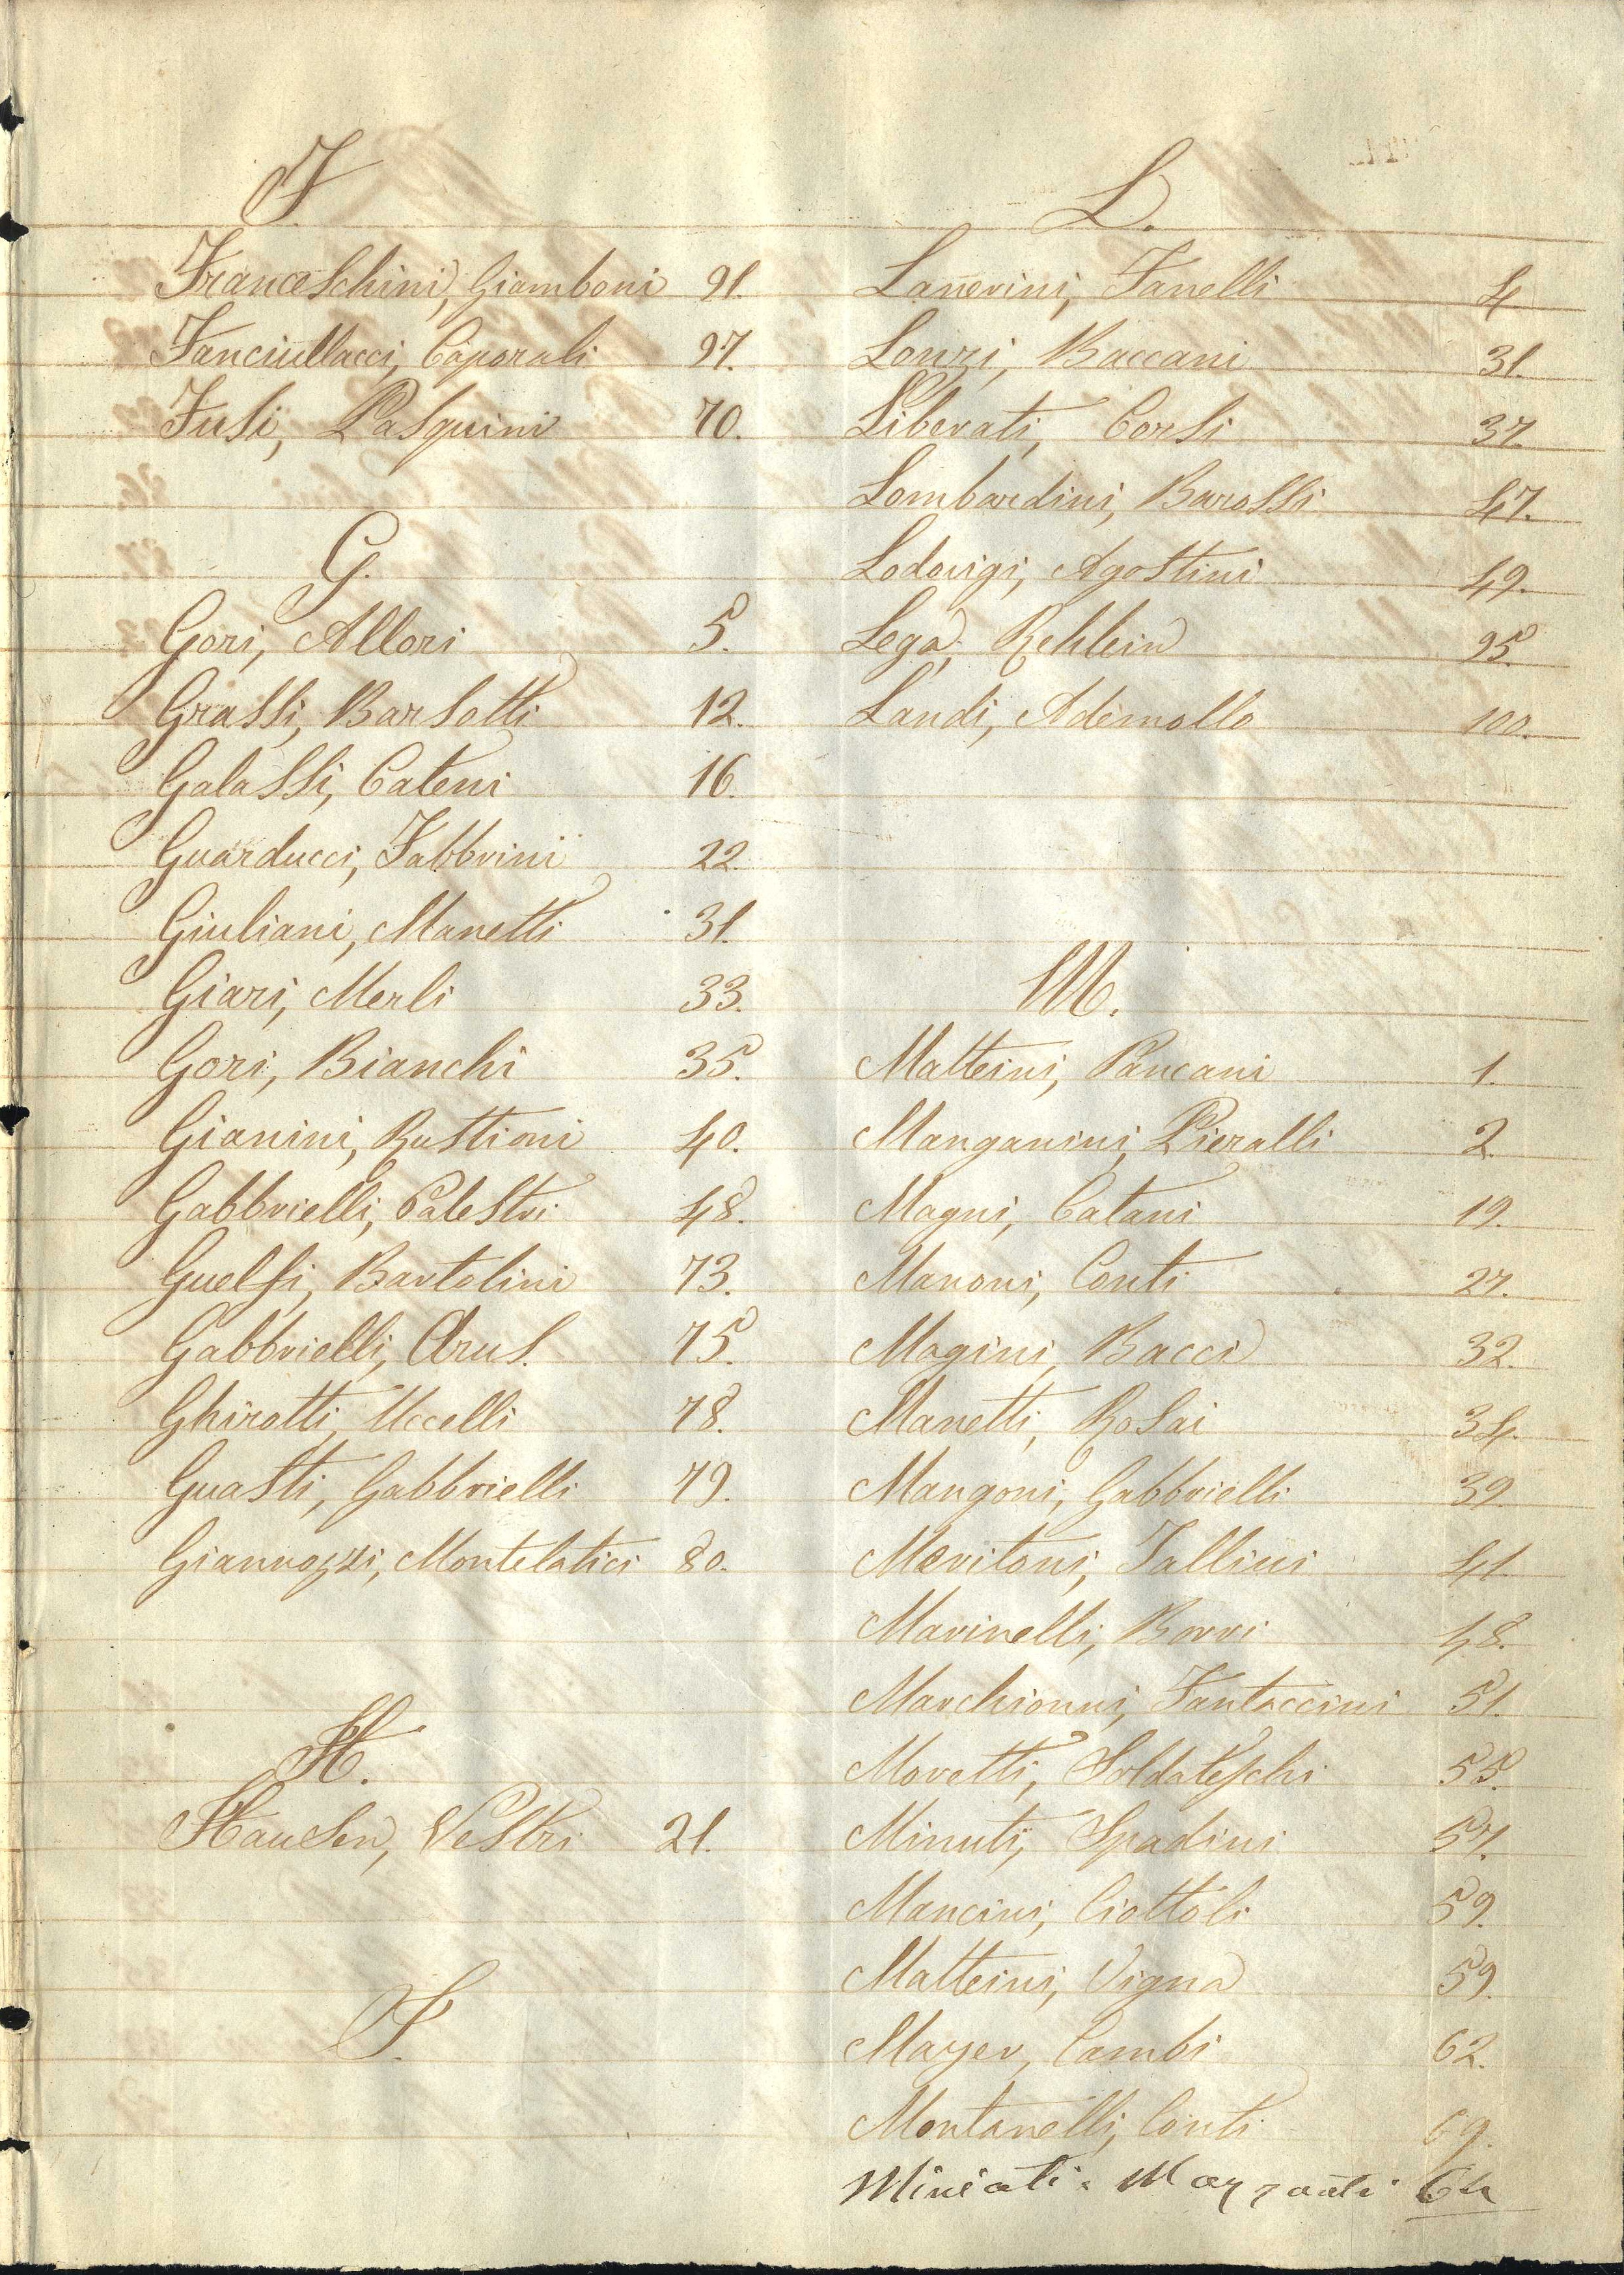 F.
Franceschini, Giamboni 91.
Fanciullacci, Caporali 97.
Fusi, Pasquini 70.
G.
Gori, Allori 5.
Grassi, Barsotti 12.
Galassi, Cateni 16.
Guarducci, Fabbrini 22
Giuliani, Manetti 31.
Giari, Merli 33.
Gori, Bianchi 35.
Gianini, Bastioni 40.
Gabbrielli, Palestri 48.
Guelfi, Bartolini 73.
Gabbrielli, Arus. 75.
Ghirotti, Uccelli 78.
Guasti, Gabbrielli 79.
Giannozzi, Montelatici 80.
H.
Hausen, Vestri 21.
I.
L.
Fanelli 4
Lonzi, Baccani 31.
Liberati, Corsi 37.
Lombardini, Barossi 47.
Lodovigi, Agostini 49.
Lega, Rehlein 95.
Landi, Ademollo 100.
M.
Matteini, Pancani 1.
Manganini, Pieralli 2.
Magni, Catani 19.
Manoni, Conti 27.
Magini, Bacci 32.
Manetti, Rosai 34.
Mangoni, Gabbrielli 39.
Meritoni, Fallini 41.
Marinelli, Borri 48.
Marchionni, Fantaccini 51.
Moretti, Soldateschi 55.
Minuti, Spadini 57.
Mancini, Ciottoli 59.
Matteini, Vigna 59.
Mayer, Cambi 62.
Montanelli, Conti 69.
Miniati. Marzanti 64